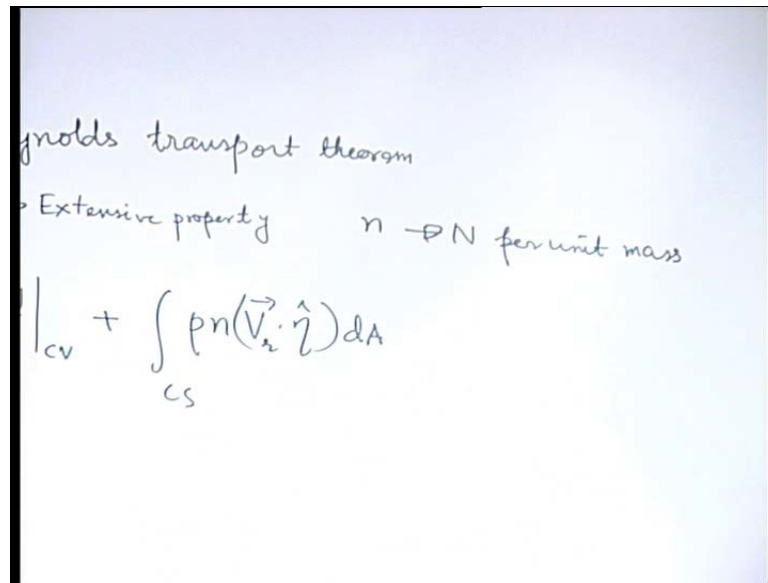 ynolds transport theorem
Extensive property n → N per unit mass
|CV + ∫CS ρn(V⃗r · η̂)dA